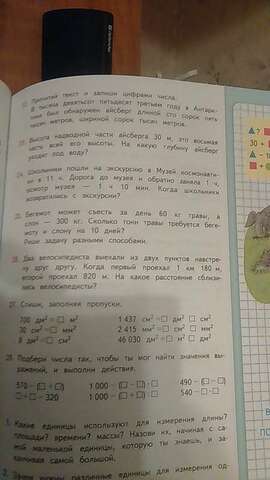 22. Прочитай текст и запиши цифрами числа.
В тысяча девятьсот пятьдесят третьем году в Антарк-
тике был обнаружен айсберг длиной сто сорок пять
тысяч метров, шириной сорок тысяч метров.
23. Высота надводной части айсберга 30 м, это восьмая
часть всей его высоты. На какую глубину айсберг
уходит под воду?
24. Школьники пошли на экскурсию в Музей космонавти-
ки в 11 ч. Дорога до музея и обратно заняла 1 ч,
осмотр музея — 1 ч 10 мин. Когда школьники
возвратились с экскурсии?
25. Бегемот может съесть за день 60 кг травы, а
слон — 300 кг. Сколько тонн травы требуется беге-
моту и слону на 10 дней?
Реши задачу разными способами.
26. Два велосипедиста выехали из двух пунктов навстре-
чу друг другу. Когда первый проехал 1 км 180 м,
второй проехал 820 м. На какое расстояние сблизи-
лись велосипедисты?
27. Спиши, заполняя пропуски.
700 дм² = □ м² 1 437 см² = □ дм² □ см²
30 см² = □ мм² 2 415 мм² = □ см² □ мм²
8 дм² = □ см² 46 030 дм² = □ м² □ дм²
28. Подбери числа так, чтобы ты мог найти значения вы-
ражений, и выполни действия.
570 − (□ + □) 1 000 − (□ − □) · □ 490 − (□ · □)
□ + □ − 320 1 000 − (□ + □) · □ 540 − □ · □
1. Какие единицы используют для измерения длины?
площади? времени? массы? Назови их, начиная с са-
мой маленькой единицы, которую ты знаешь, и за-
канчивая самой большой.
2. Зачем нужны различные единицы для измерения од-
? 
30 +